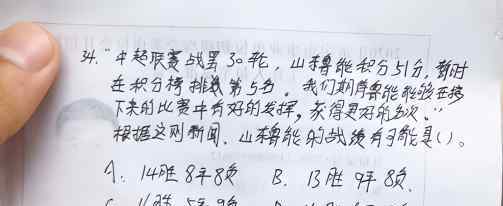 34. “中超联赛战罢30轮，山东鲁能积分51分，暂时
在积分榜排载第5名。我们期待鲁能能够在接
下来的比赛中有好的发挥，获得更好的名次。”
根据这则新闻，山东鲁能的战绩有可能是（）。
A. 14胜8平8负 B. 13胜9平8负